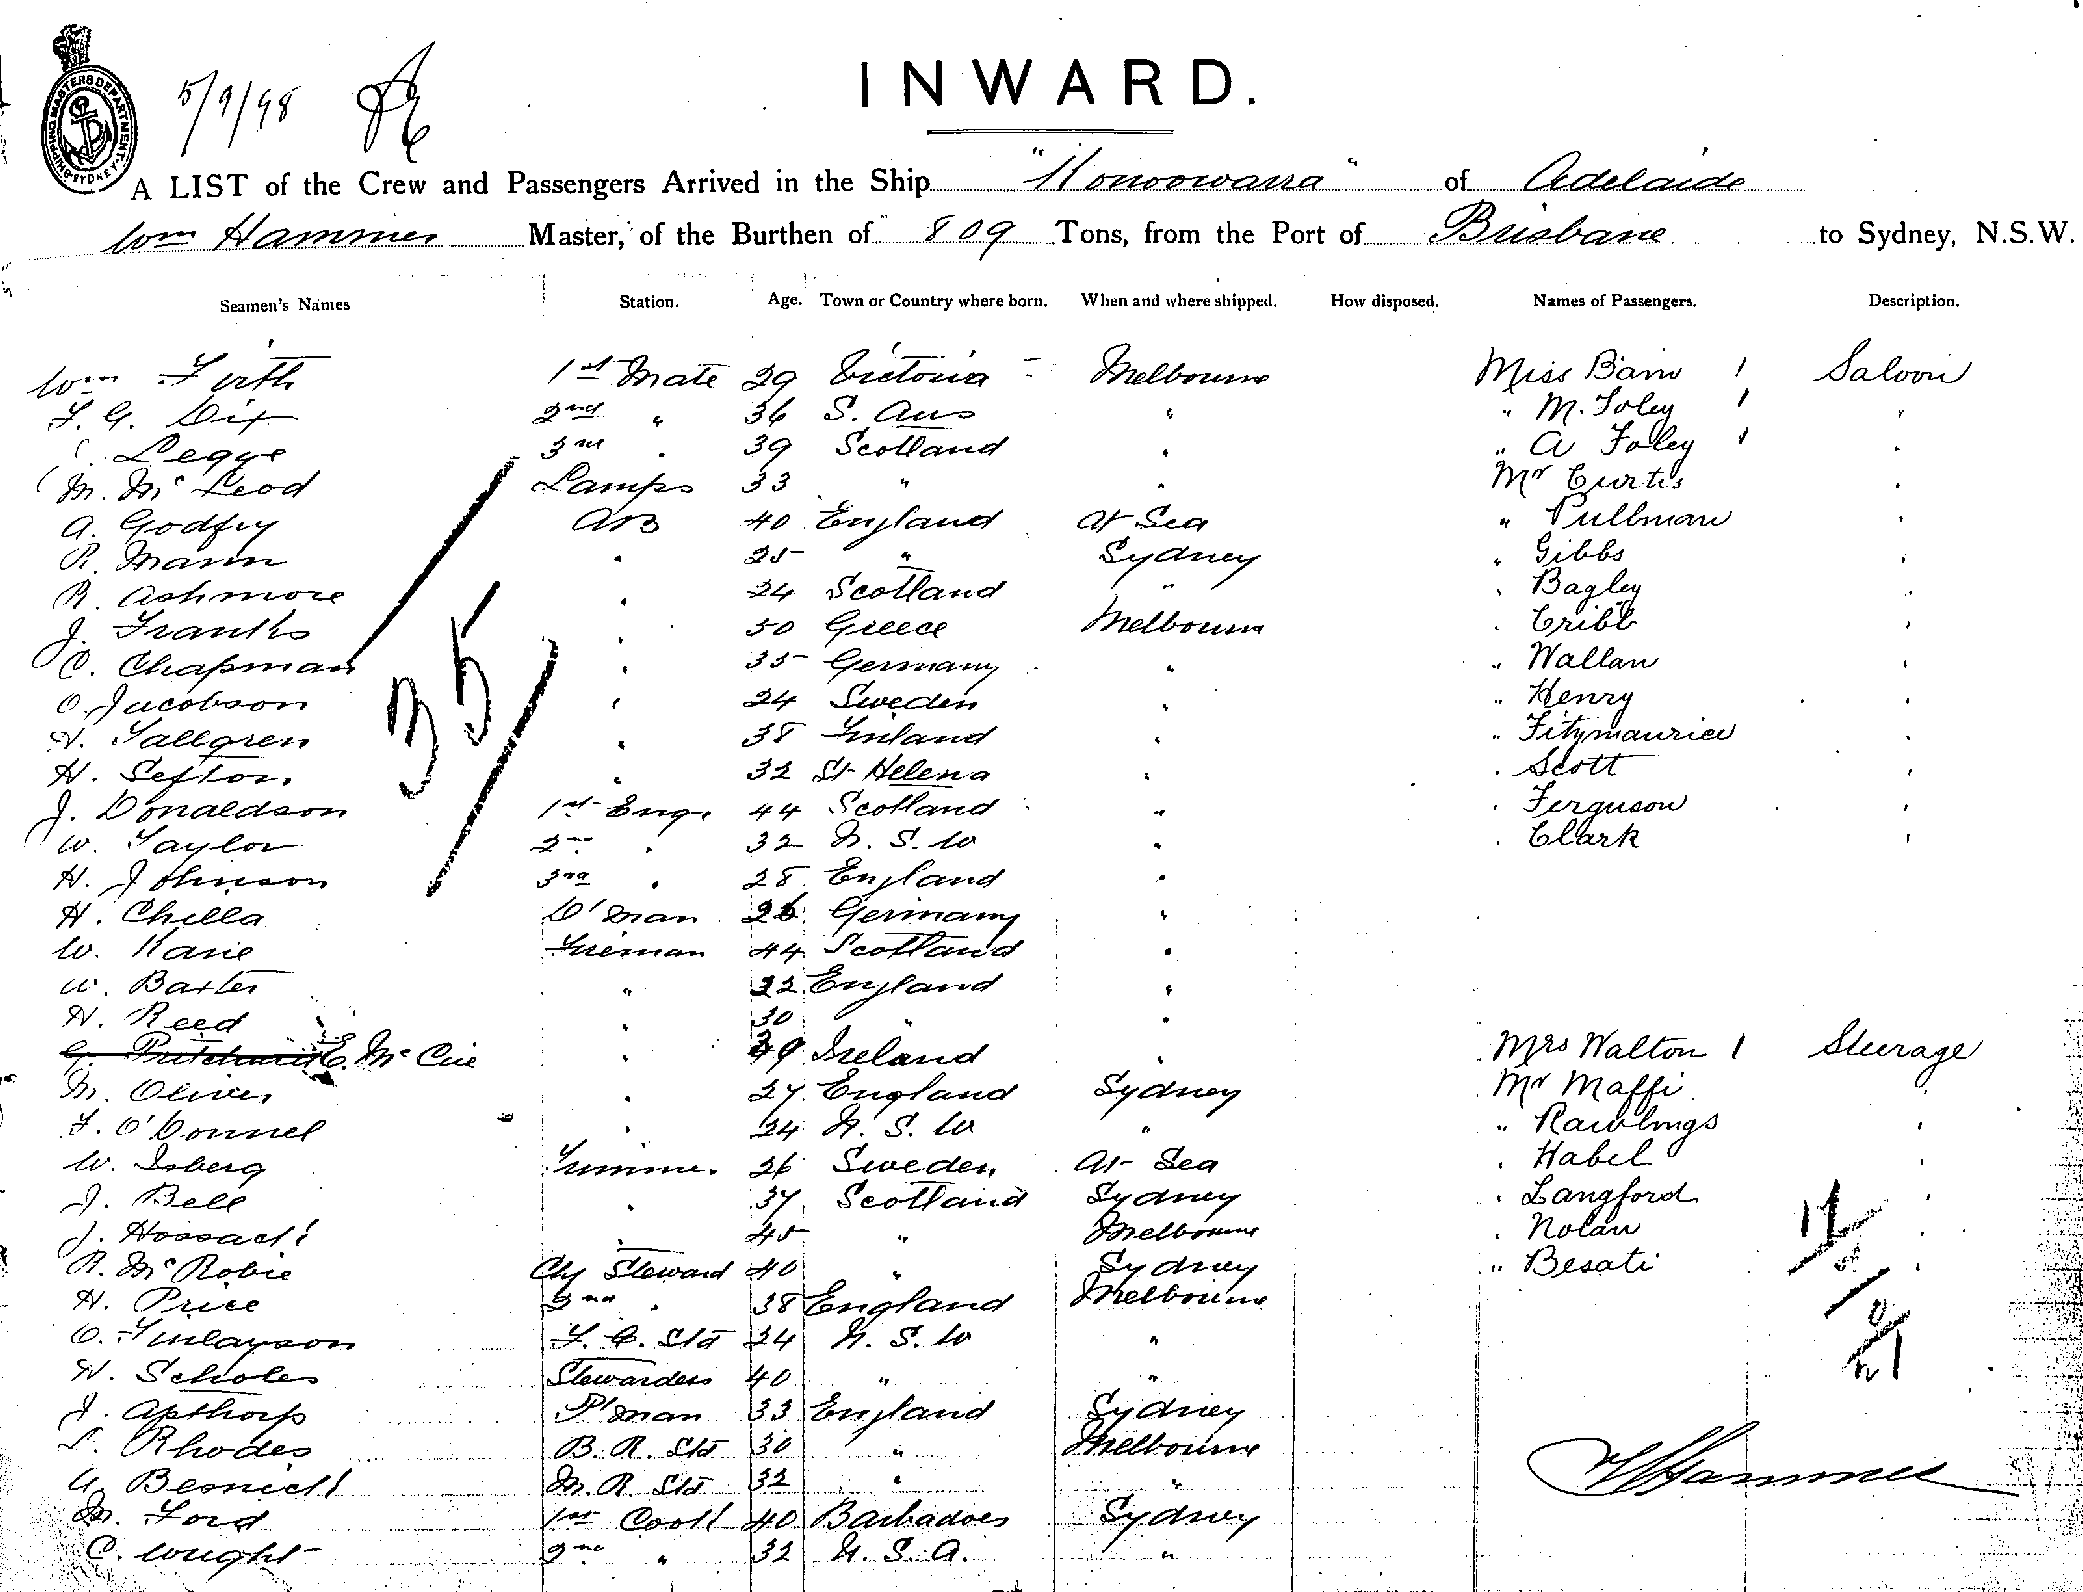 SHIPPING MASTERS DEPARTMENT SYDNEY
5/9/98
INWARD.
A LIST of the Crew and Passengers Arrived in the Ship "Konoowarra" of Adelaide
Wm Hammer Master, of the Burthen of 809 Tons, from the Port of Brisbane to Sydney, N.S.W.
Seamen's Names Station. Age. Town or Country where born. When and where shipped. How disposed. Names of Passengers. Description.
Wm Firth 1st Mate 29 Victoria - Melbourne Miss Bain 1 Saloon
F. G. Dix 2nd " 36 S. Aus " " M. Foley 1 "
Legge 3rd " 39 Scotland " " A Foley 1 "
M. McLeod Lamps 33 " " Mr Curtis "
A. Godfry AB 40 England At Sea " Pullman "
R. Mann " 25 " Sydney " Gibbs "
R. Ashmore " 24 Scotland " " Bagley "
J. Franks " 50 Greece Melbourne " Cribb "
C. Chapman " 35 Germany " " Wallan "
O. Jacobson " 24 Sweden " " Henry "
35
H. Tallgren " 38 Finland " " Fitzmaurice "
H. Sefton " 32 St Helena " " Scott "
J. Donaldson 1st Engr 44 Scotland " " Ferguson "
W. Taylor 2nd " 32 N. S. W " " Clark "
H. Johnson 3rd " 28 England "
H. Chella D'man 26 Germany "
W. Kane Fireman 44 Scotland "
W. Baxter " 22 England "
H. Reed " 30 " "
G. Pritchard E. McCue " 29 Ireland " Mrs Walton 1 Steerage
M. Oliver " 27 England Sydney Mr Maffi "
F. O'Connel " 24 N. S. W " " Rawlings "
W. Isberg Trimmer 26 Sweden At Sea " Habel "
J. Bell " 37 Scotland Sydney " Langford "
J. Hossack " 45 " Melbourne " Nolan "
R. McRobie Chf Steward 40 " Sydney " Besati "
H. Price 2nd " 38 England Melbourne
O. Finlayson F. C. Std 24 N. S. W "
H. Scholes Stewardess 40 " "
J. Apthorp P'man 33 England Sydney
Rhodes B. R. Std 30 " Melbourne
Besnick M. R. Std 32 " "
W Hammer
M. Ford 1st Cook 40 Barbadoes Sydney
C. Wright 2nd " 32 U. S. A. "